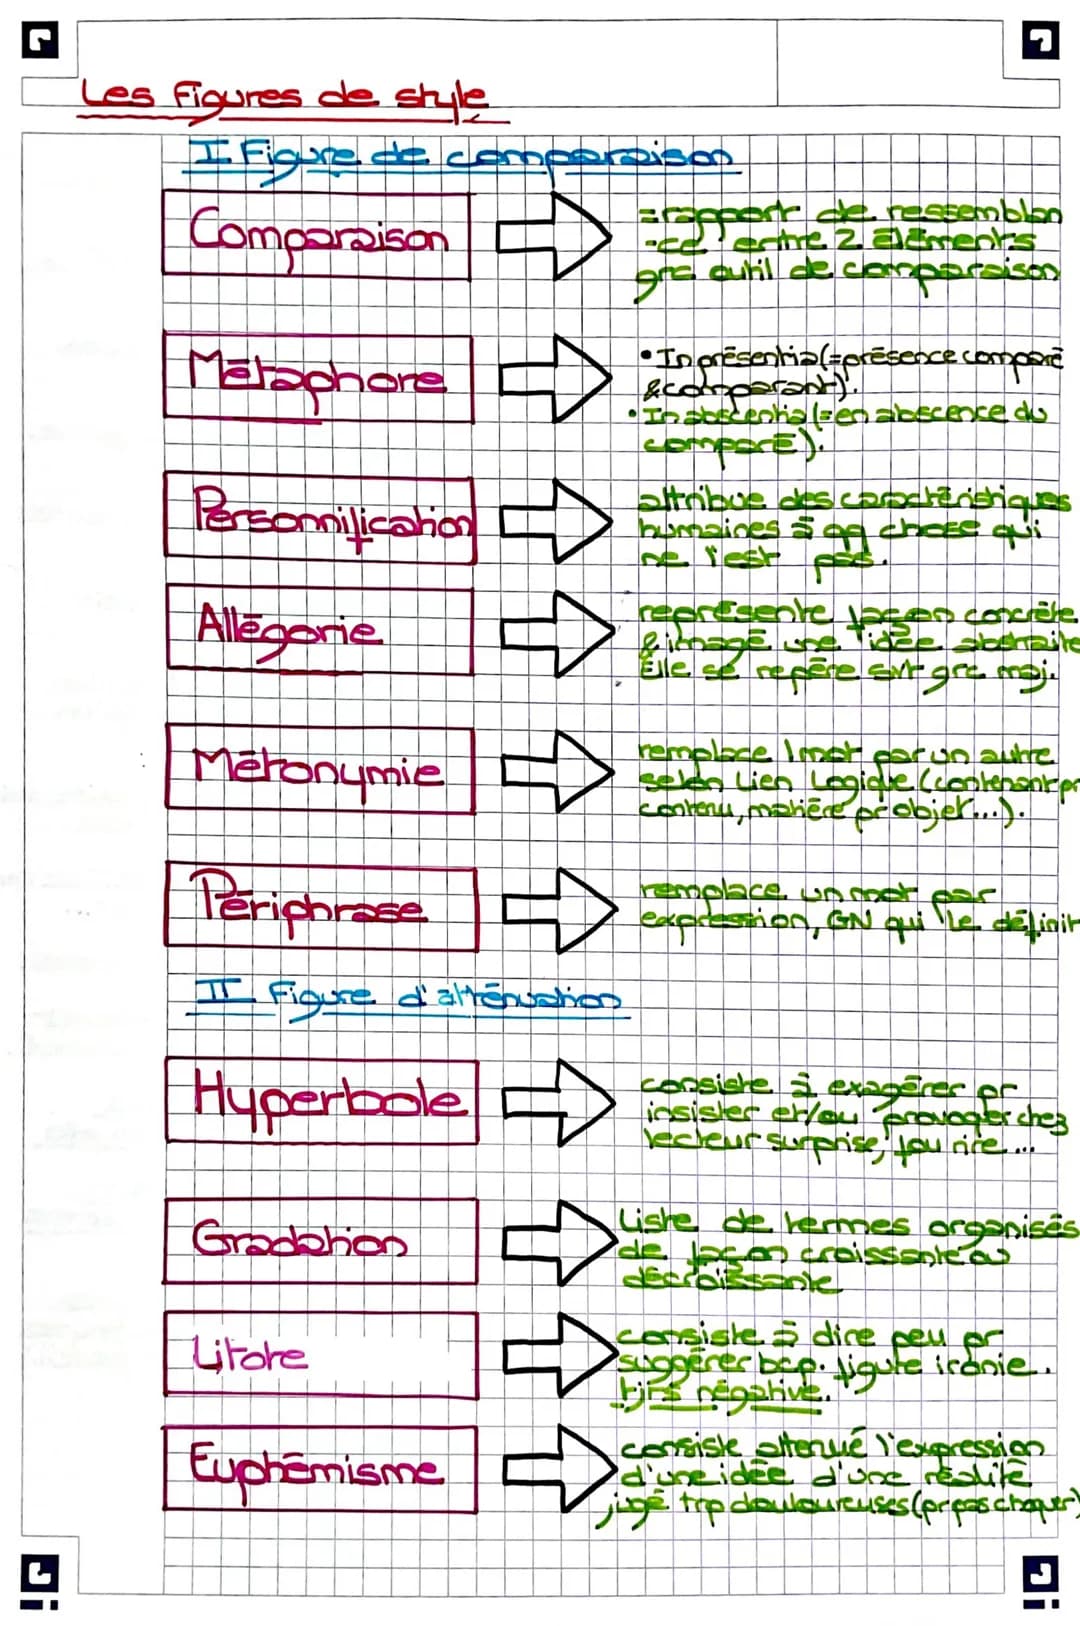 Les figures de style
I Figure de comparaison
Comparaison
=rapport de ressemblan
-ce entre 2 éléments
grc outil de comparaison
Métaphore
• In présentia (=présence comparé
& comparant).
• In abscentia (=en abscence du
comparé).
Personnification
attribue des caractéristiques
humaines à qq chose qui
ne l'est pas.
Allégorie
représente façon concrète
& imagé une idée abstraite
Elle se repère svt grc maj.
Métonymie
remplace 1 mot par un autre
selon lien logique (contenant pr
contenu, matière pr objet...).
Périphrase
remplace un mot par
expression, GN qui le définit
II Figure d'atténuation
Hyperbole
consiste à exagérer pr
insister et/ou provoqer chez
lecteur surprise, fou rire...
Gradation
Liste de termes organisés
de façon croisssante ou
décroissante
Litote
consiste à dire peu pr
suggérer bcp. figute ironie.
tjrs négative.
Euphémisme
consiste attenué l'expression
d'une idée d'une réalité
jugé trp douloureuses (pr pas choquer)